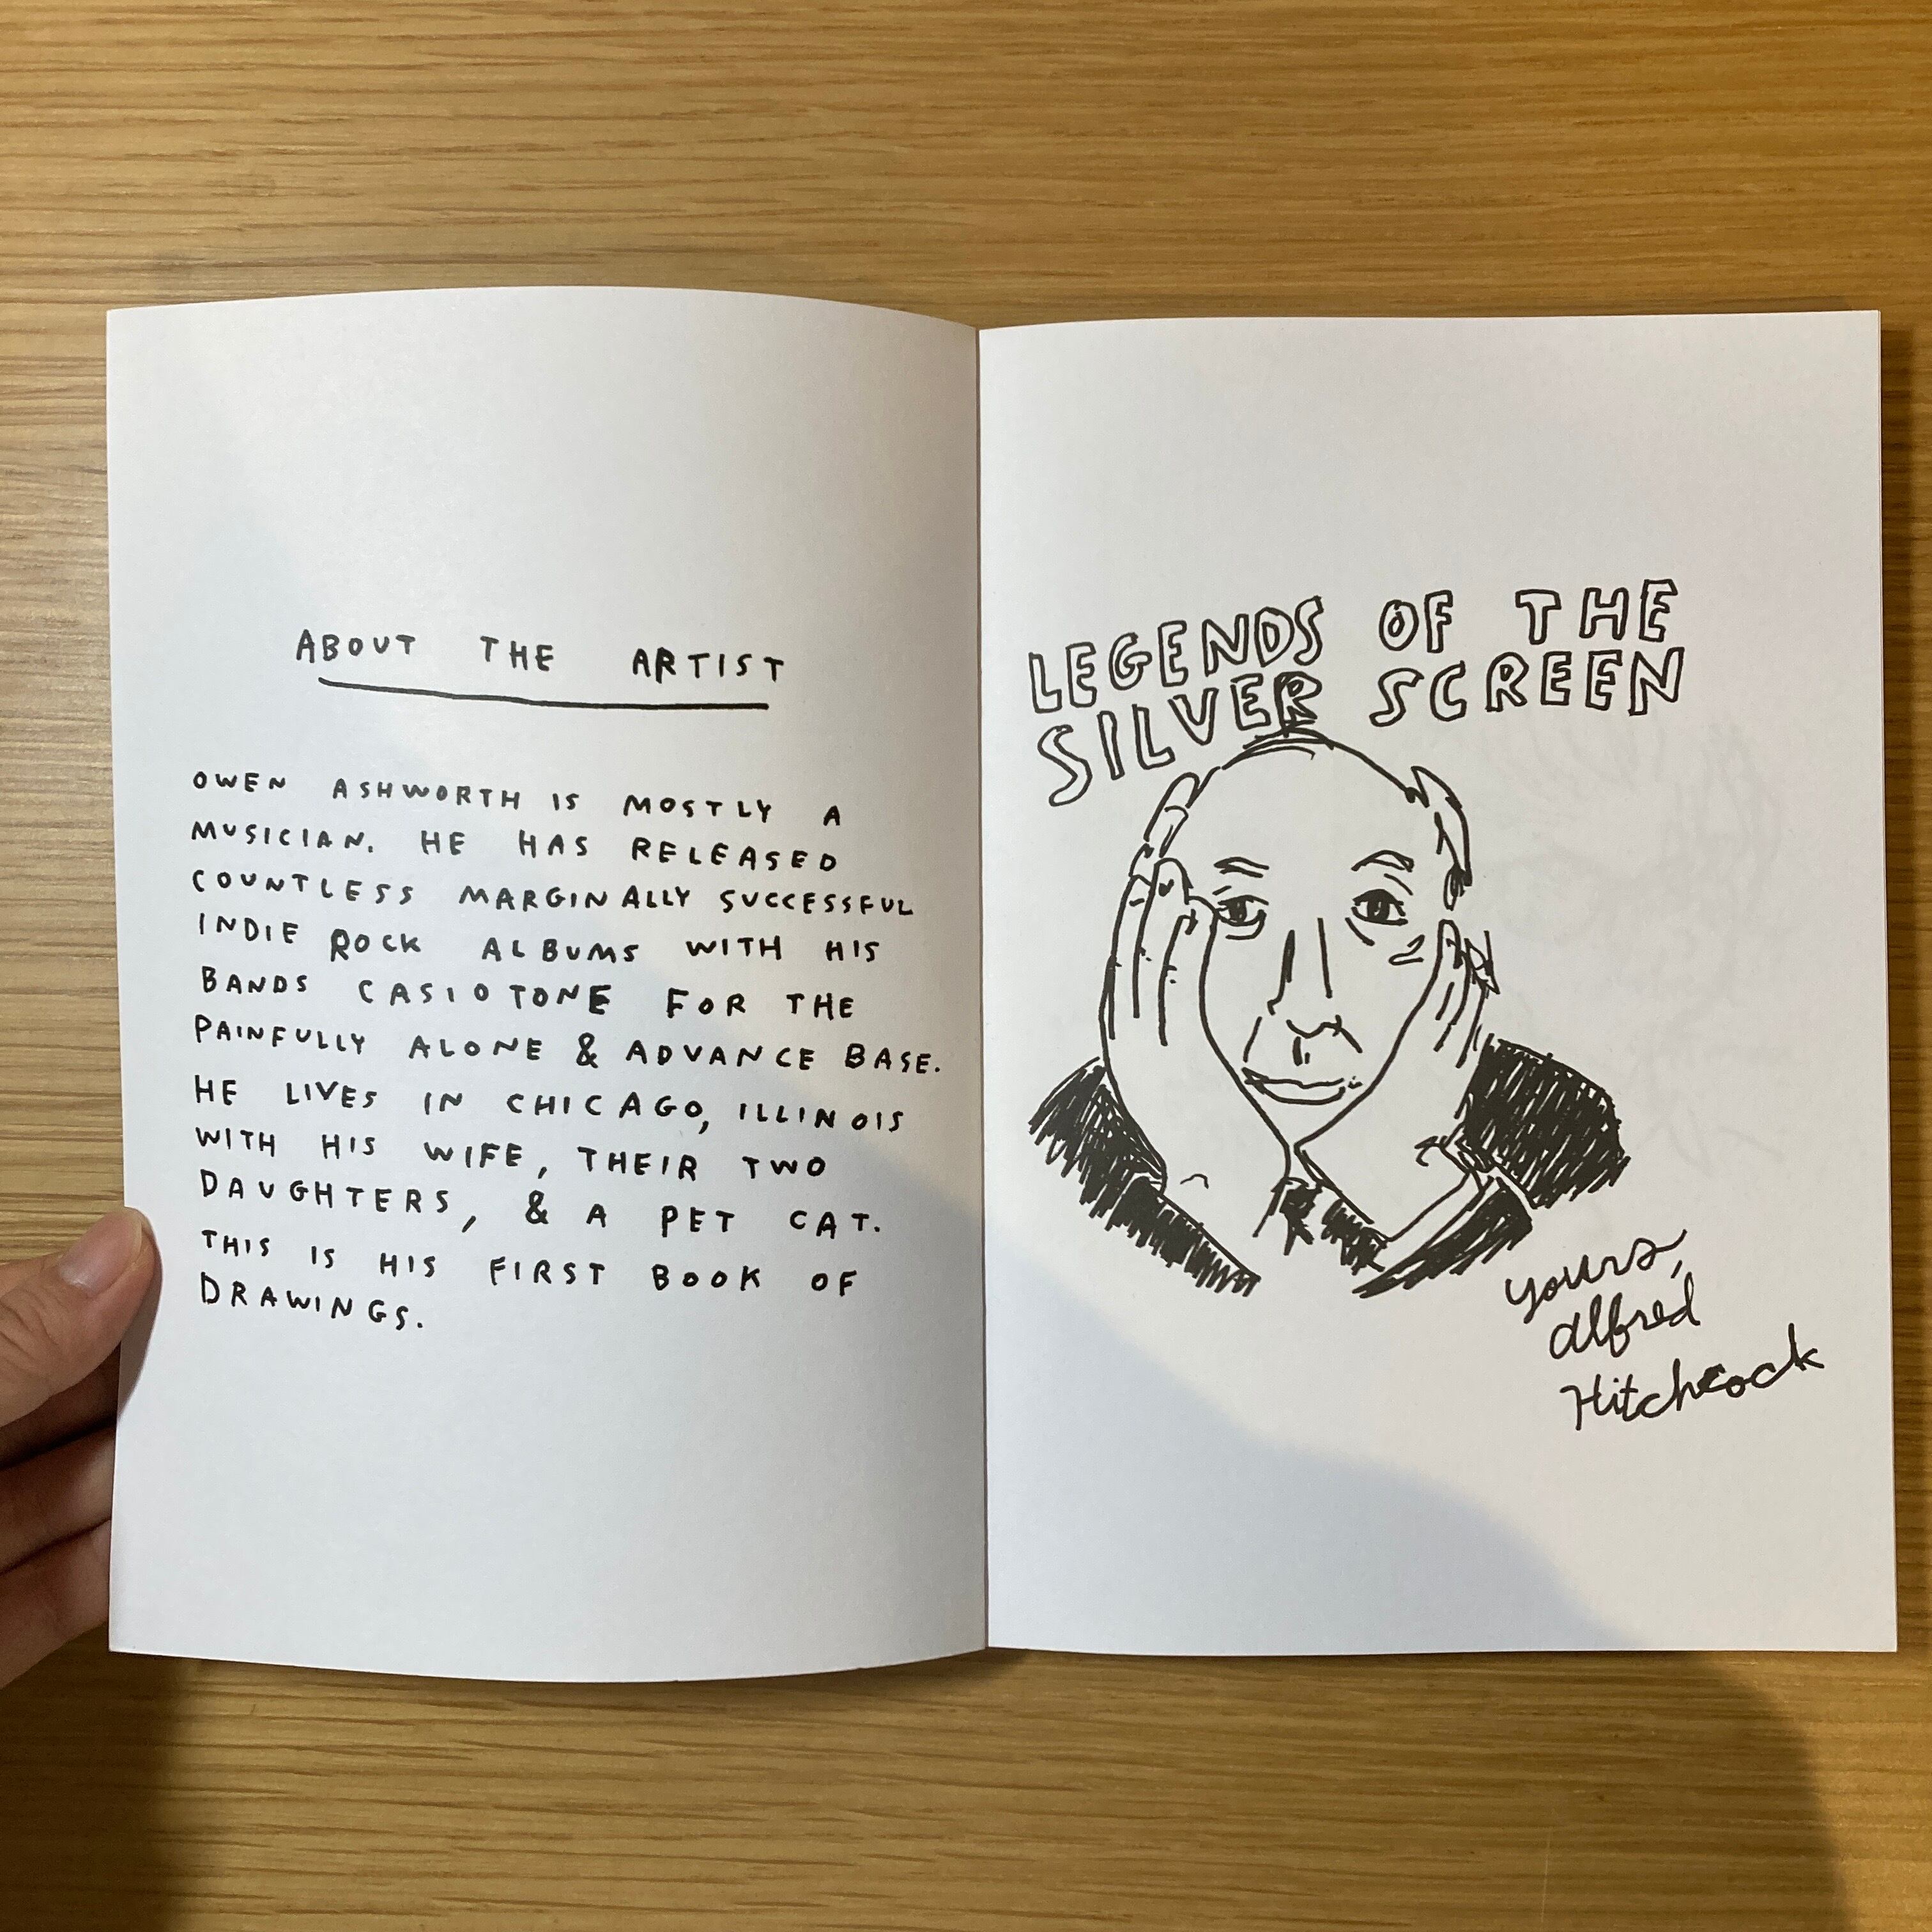 ABOUT THE ARTIST
OWEN ASHWORTH IS MOSTLY A
MUSICIAN. HE HAS RELEASED
COUNTLESS MARGINALLY SUCCESSFUL
INDIE ROCK ALBUMS WITH HIS
BANDS CASIOTONE FOR THE
PAINFULLY ALONE & ADVANCE BASE.
HE LIVES IN CHICAGO, ILLINOIS
WITH HIS WIFE, THEIR TWO
DAUGHTERS, & A PET CAT.
THIS IS HIS FIRST BOOK OF
DRAWINGS.
LEGENDS OF THE
SILVER SCREEN
yours,
Alfred
Hitchcock